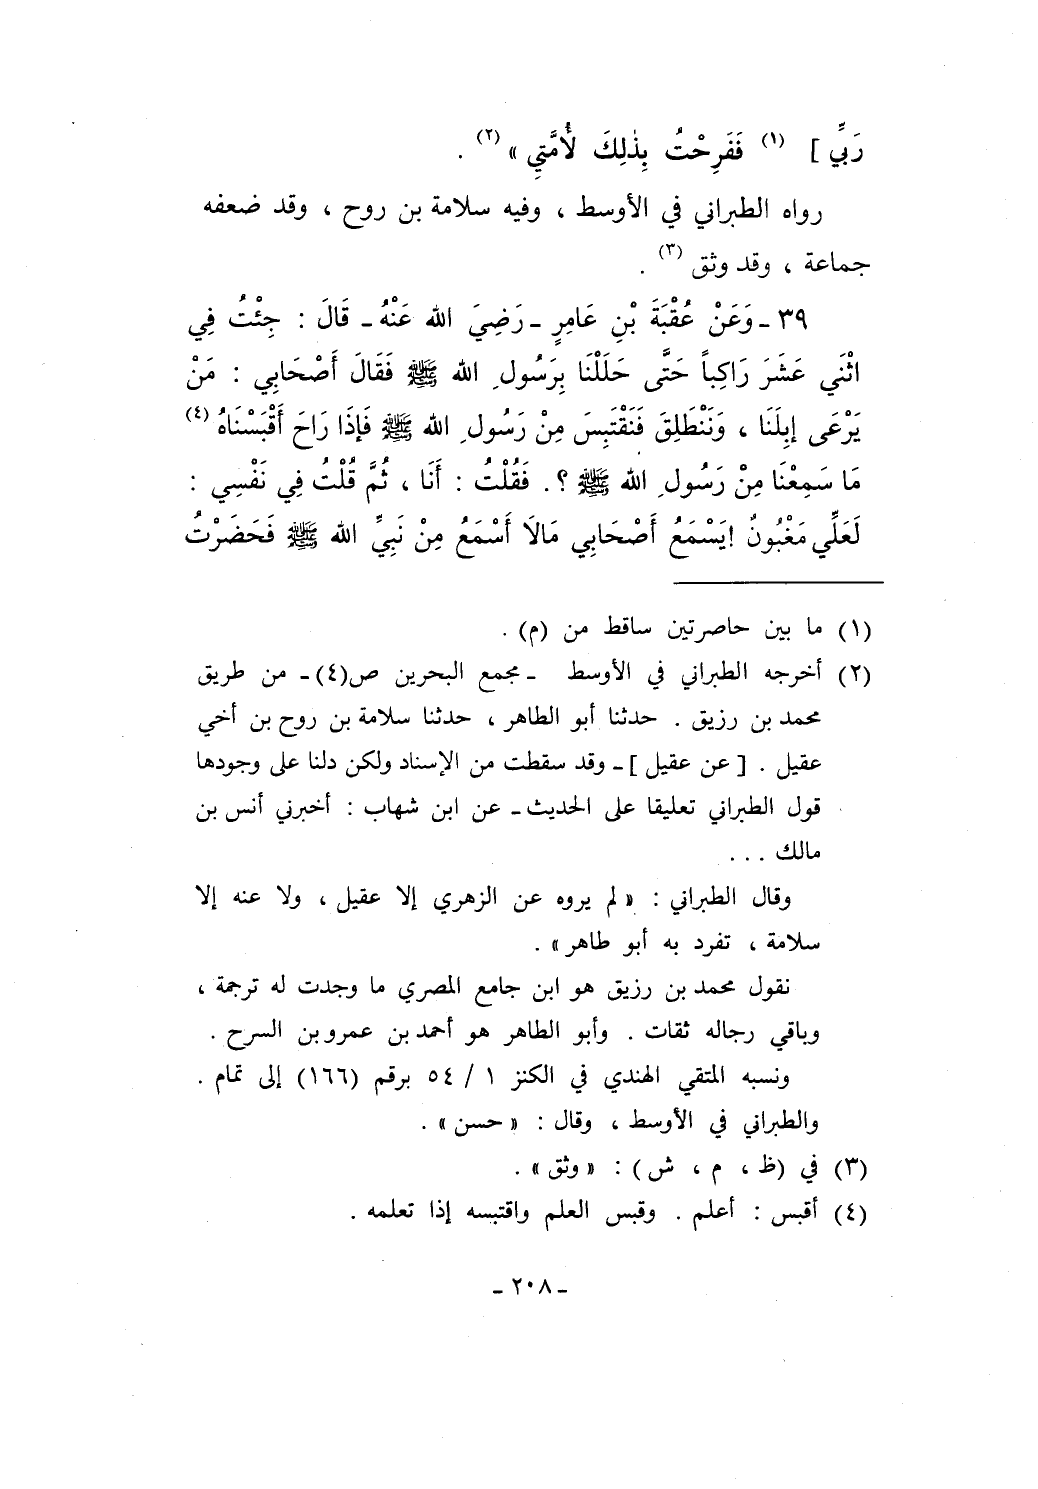 رَبِّي ] (١) فَفَرِحْتُ بِذٰلِكَ لُأمَّتِي » (٢) .
رواه الطبراني في الأوسط ، وفيه سلامة بن روح ، وقد ضعفه
جماعة ، وقد وثق (٣) .
٣٩ ـ وَعَنْ عُقْبَةَ بْنِ عَامِرٍ ـ رَضِيَ الله عَنْهُ ـ قَالَ : جِئْتُ فِي
اثْنَي عَشَرَ رَاكِباً حَتَّى حَلَلْنَا بِرَسُولِ الله ﷺ فَقَالَ أَصْحَابِي : مَنْ
يَرْعَى إبِلَنَا ، وَنَنْطَلِقَ فَنَقْتَبِسَ مِنْ رَسُولِ الله ﷺ فَإذَا رَاحَ أَقْبَسْنَاهُ (٤)
مَا سَمِعْنَا مِنْ رَسُولِ الله ﷺ ؟. فَقُلْتُ : أَنَا ، ثُمَّ قُلْتُ فِي نَفْسِي :
لَعَلِّي مَغْبُونٌ !يَسْمَعُ أَصْحَابِي مَالَا أَسْمَعُ مِنْ نَبِيِّ الله ﷺ فَحَضَرْتُ
(١) ما بين حاصرتين ساقط من (م) .
(٢) أخرجه الطبراني في الأوسط ـ مجمع البحرين ص(٤) ـ من طريق
محمد بن رزيق . حدثنا أبو الطاهر ، حدثنا سلامة بن روح بن أخي
عقيل . [ عن عقيل ] ـ وقد سقطت من الإسناد ولكن دلنا على وجودها
قول الطبراني تعليقا على الحديث ـ عن ابن شهاب : أخبرني أنس بن
مالك . . .
وقال الطبراني : « لم يروه عن الزهري إلا عقيل ، ولا عنه إلا
سلامة ، تفرد به أبو طاهر » .
نقول محمد بن رزيق هو ابن جامع المصري ما وجدت له ترجمة ،
وباقي رجاله ثقات . وأبو الطاهر هو أحمد بن عمرو بن السرح .
ونسبه المتقي الهندي في الكنز ١ / ٥٤ برقم (١٦٦) إلى تمام .
والطبراني في الأوسط ، وقال : « حسن » .
(٣) في (ظ ، م ، ش) : « وثق » .
(٤) أقبس : أعلم . وقبس العلم واقتبسه إذا تعلمه .
ـ ٢٠٨ ـ